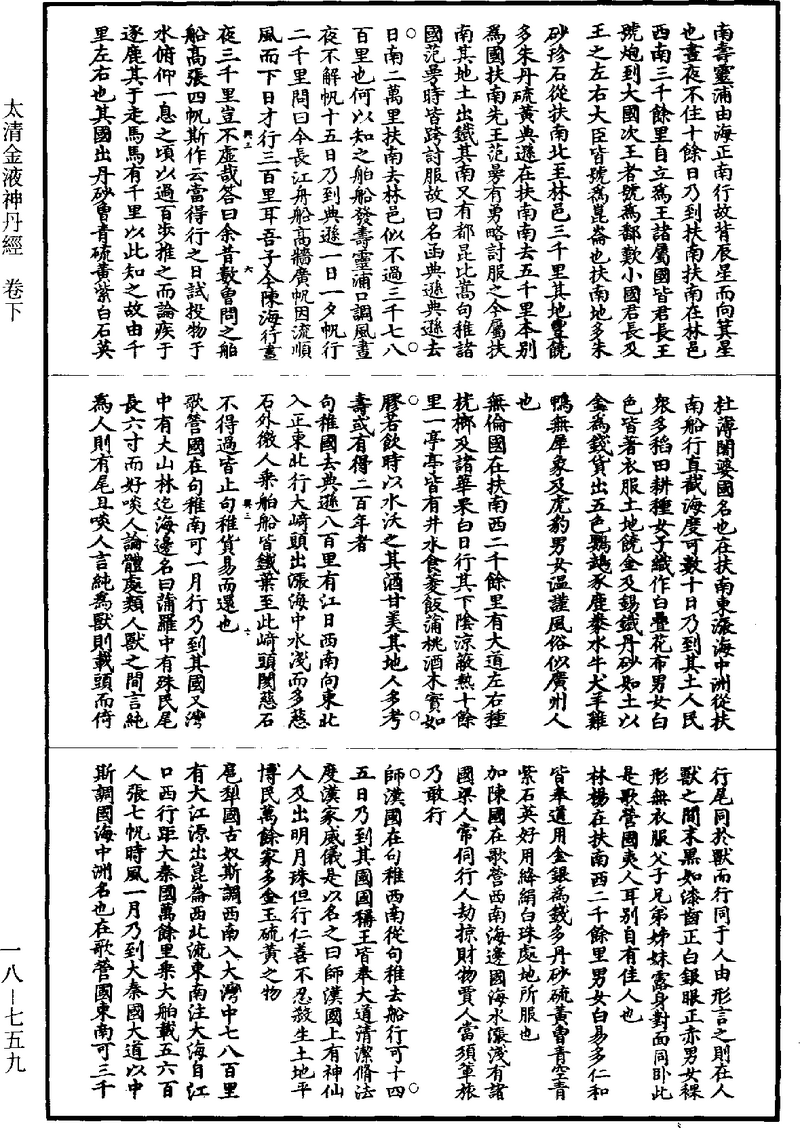 太清金液神丹經　卷下
南壽靈浦由海正南行故背辰星而向箕星
也晝夜不住十餘日乃到扶南扶南在林邑
西南三千餘里自立爲王諸屬國皆君長王
號炮到大國次王者號爲鄱歎小國君長及
王之左右大臣皆號爲崑崙也扶南地多朱
砂珍石從扶南北至林邑三千里其地豐饒
多朱丹硫黃典遜在扶南南去五千里本別
爲國扶南先王范蔓有勇略討服之今屬扶
南其地土出鐵其南又有都昆比嵩句稚諸
國范蔓時皆跨討服故曰名函典遜典遜去
日南二萬里扶南去林邑似不過三千七八
百里也何以知之舶船發壽靈浦口調風晝
夜不解帆十五日乃到典遜一日一夕帆行
二千里問曰今長江舟船高檣廣帆因流順
風而下日才行三百里耳吾子今陳海行晝
夜三千里豈不虛哉答曰余昔數曾問之舶
船高張四帆斯作云當得行之日試投物于
水俯仰一息之頃以過百步推之而論疾于
逐鹿其于走馬馬有千里以此知之故由千
里左右也其國出丹砂曾青硫黃紫白石英
興二　六
杜薄闍婆國名也在扶南東漲海中洲從扶
南船行直截海度可數十日乃到其土人民
衆多稻田耕種女子織作白疊花布男女白
色皆著衣服土地饒金及錫鐵丹砂如土以
金爲錢貨出五色鸚鵡豕鹿豢水牛犬羊雞
鴨無犀象及虎豹男女溫謹風俗似廣州人
也
無倫國在扶南西二千餘里有大道左右種
桄榔及諸華果白日行其下陰涼蔽熱十餘
里一亭亭皆有井水食菱飯蒲桃酒木實如
膠若飲時以水沃之其酒甘美其地人多考
壽或有得二百年者
句稚國去典遜八百里有江口西南向東北
入正東北行大崎頭出漲海中水淺而多慈
石外徼人乘舶船皆鐵葉至此崎頭閡慈石
不得過皆止句稚貨易而還也
歌營國在句稚南可一月行乃到其國又灣
中有大山林迄海邊名曰蒲羅中有殊民尾
長六寸而好啖人論體處類人獸之間言純
爲人則有尾且啖人言純爲獸則載頭而倚
行尾同於獸而行同于人由形言之則在人
獸之間末黑如漆齒正白銀眼正赤男女裸
形無衣服父子兄弟姊妹露身對面同卧此
是歌營國夷人耳別自有佳人也
林楊在扶南西二千餘里男女白易多仁和
皆奉道用金銀爲錢多丹砂硫黃曾青空青
紫石英好用絳絹白珠處地所服也
加陳國在歌營西南海邊國海水漲淺有諸
國梁人常伺行人劫掠財物賈人當須軍旅
乃敢行
師漢國在句稚西南從句稚去船行可十四
五日乃到其國國稱王皆奉大道清潔脩法
度漢家威儀是以名之曰師漢國上有神仙
人及出明月珠但行仁善不忍殺生土地平
博民萬餘家多金玉硫黃之物
扈犁國古奴斯調西南入大灣中七八百里
有大江源出崑崙西北流東南注大海自江
口西行距大秦國萬餘里乘大舶載五六百
人張七帆時風一月乃到大秦國大道以中
斯調國海中洲名也在歌營國東南可三千
一八—七五九